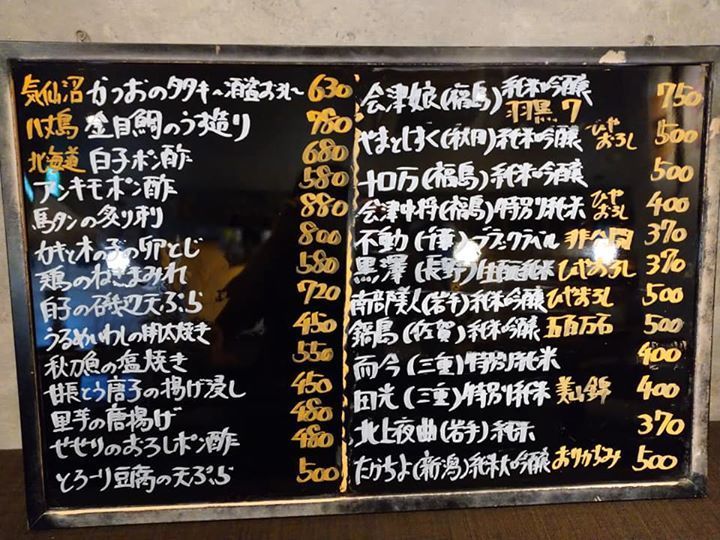 気仙沼 かつおのタタキ〜酒盗おろし〜 630
八丈島 金目鯛のうす造り 780
北海道 白子ポン酢 680
アンキモポン酢 580
馬タンの炙り刺 880
カキと木の子の卵とじ 800
鶏のねぎまみれ 580
白子の磯辺天ぷら 720
うるめいわしの明太焼き 450
秋刀魚の塩焼き 550
甘長とう唐子の揚げ浸し 450
里芋の唐揚げ 480
せせりのおろしポン酢 480
とろーり豆腐の天ぷら 500
会津娘(福島)純米吟醸 羽黒7 750
やまとしずく(秋田)純米吟醸 ひやおろし 500
十口万(福島)純米吟醸 500
会津中将(福島)特別純米 ひやおろし 400
不動(千葉)ブラックラベル 非公開 370
黒澤(長野)生酛純米 ひやおろし 370
南部美人(岩手)純米吟醸 ひやおろし 500
鍋島(佐賀)純米吟醸 五百万石 500
而今(三重)特別純米 400
田光(三重)特別純米 美山錦 400
北上夜曲(岩手)純米 370
たかちよ(新潟)純米大吟醸 おりがらみ 500